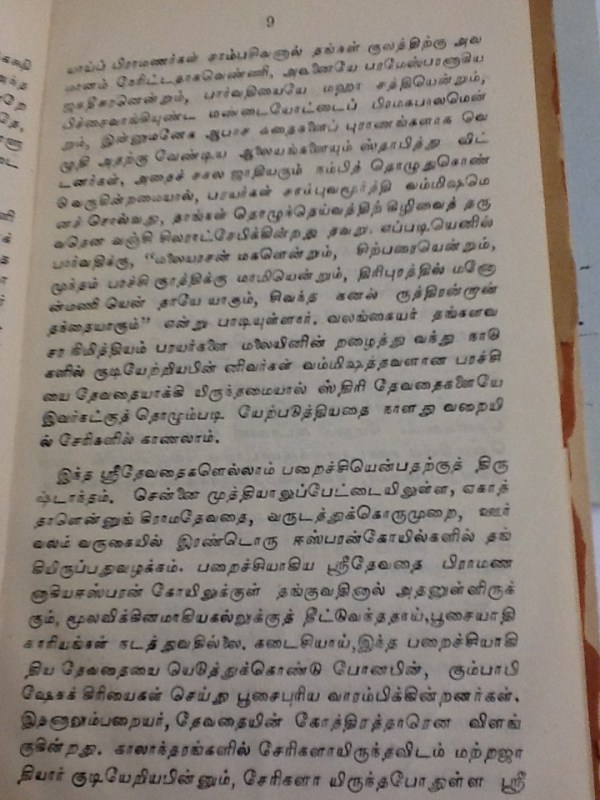 9
யாய்ப் பிராமணர்கள் சாம்பசிவனால் தங்கள் குலத்திற்கு அவ
மானம் நேரிட்டதாகவெண்ணி, அவனையே பரமேஸ்பரனாகிய
ஜகதீசானென்றும், பார்வதியையே மஹா சத்தியென்றும்,
பிச்சைவாங்கியுண்ட மண்டையோட்டைப் பிரமகபாலமென்
றும், இன்னுமனேக ஆபாச கதைகளைப் புராணங்களாக வெ
முதி அதற்கு வேண்டிய ஆலயங்களையும் ஸ்தாபித்து விட்
டனர்கள், அதைச் சகல ஜாதியரும் நம்பித் தொழுதுகொண்
வெருகின்றமையால், பரயர்கள் சாம்புவமூர்த்தி வம்மிஷமெ
னச் சொல்வது, தாங்கள் தொழுந்தெய்வத்திற் கிழிவைத் தரு
வதென வஞ்சி சிலராட்சேபிக்கின்றது தவறு. எப்படியெனில்
பார்வதிக்கு, “மலையரசன் மகளென்றும், சிற்பரையென்றும்,
முந்தம் பரச்சி குாத்திக்கு மாமியென்றும், திரிபுரத்தில் மனோ
ன்மணி யென் தாயே யாகும், சிவந்த கனல் ருத்திரன்றான்
தந்தையாகும்” என்று பாடியுள்ளார். வலங்கையர் தங்களவ
சர நிமித்தியம் பரயர்களை மலையினின் றழைத்து வந்து நாடு
களில் குடியேற்றியபின் னிவர்கள் வம்மிஷத்தவளான பரச்சி
யை தேவதையாக்கி யிருந்தமையால் ஸ்திரி தேவதைகளையே
இவர்கட்குத் தொழும்படி யேற்படுத்தியதை நாளது வறையி
ல் சேரிகளில் காணலாம்.
இந்த ஸ்ரீதேவதைகளெல்லாம் பறைச்சியென்பதற்குத் திரு
ஷ்டாந்தம். சென்னை முத்தியாலுப்பேட்டையிலுள்ள, ஏகாத்
தாளென்னுங் கிராமதேவதை, வருடத்துக்கொருமுறை, ஊர்
வலம் வருகையில் இரண்டொரு ஈஸ்பரன்கோயில்களில் தங்
கியிருப்பதுவழக்கம். பறைச்சியாகிய ஸ்ரீதேவதை பிராமண
னாகியஈஸ்பரன் கோயிலுக்குள் தங்குவதினால் அதனுள்ளிருக்
கும், மூலவிக்கினமாகியகல்லுக்குத் தீட்டுவந்ததாய்,பூசையாதி
காரியங்கள் நடத்துவதில்லை. கடைசியாய்,இந்த பறைச்சியாகி
திய தேவதையை யெடுத்துக்கொண்டு போனபின், கும்பாபி
ஷேகக் கிரியைகள் செய்து பூசைபுரிய வாரம்பிக்கின்றனர்கள்.
இதனாலும்பறையர், தேவதையின் கோத்திரத்தாரென விளங்
குகின்றது. காலாந்தரங்களில் சேரிகளாயிருந்தவிடம் மற்றஜா
தியார் குடியேறியபின்னும், சேரிகளா யிருந்தபோதுள்ள ஸ்ரீ